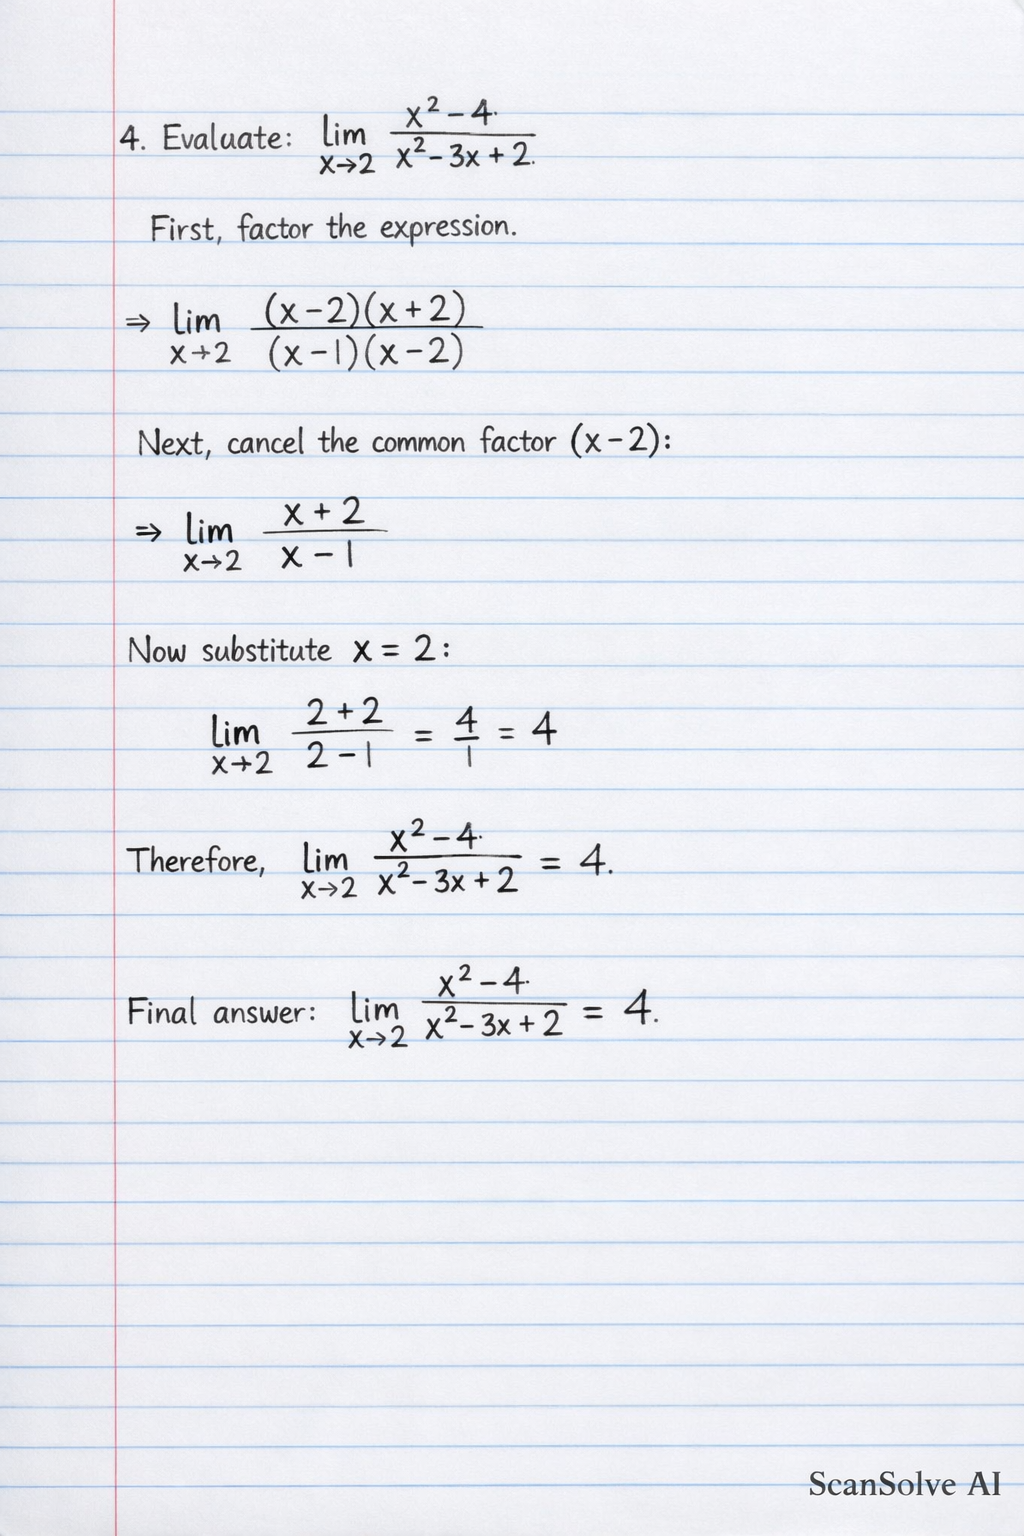 4. Evaluate: lim x→2 (x² - 4)/(x² - 3x + 2).
First, factor the expression.
⇒ lim x→2 (x - 2)(x + 2)/(x - 1)(x - 2)
Next, cancel the common factor (x - 2):
⇒ lim x→2 (x + 2)/(x - 1)
Now substitute x = 2:
lim x→2 (2 + 2)/(2 - 1) = 4/1 = 4
Therefore, lim x→2 (x² - 4)/(x² - 3x + 2) = 4.
Final answer: lim x→2 (x² - 4)/(x² - 3x + 2) = 4.
ScanSolve AI